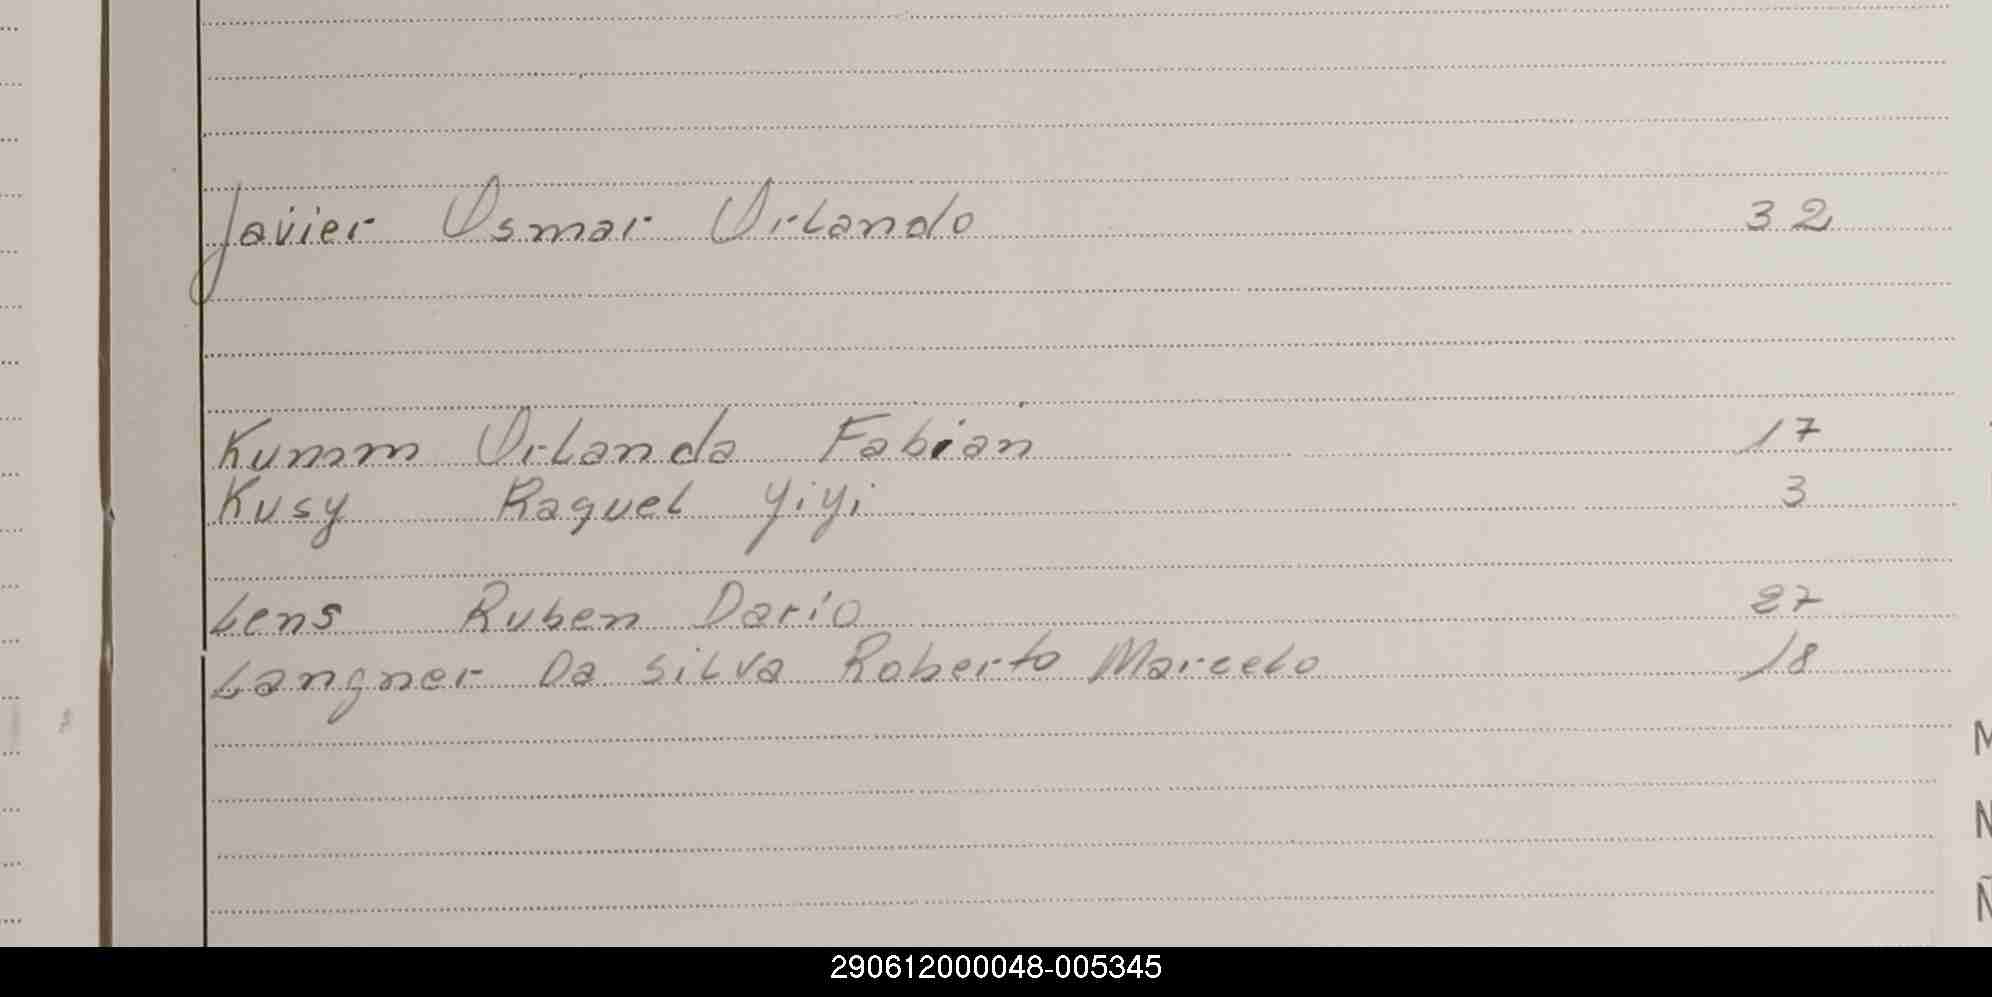 Javier Osmar Orlando 32
Kumm Orlanda Fabian 17
Kusy Raquel Yiyi 3
Lens Ruben Dario 27
Langner Da Silva Roberto Marcelo 18
M
N
Ñ
290612000048-005345